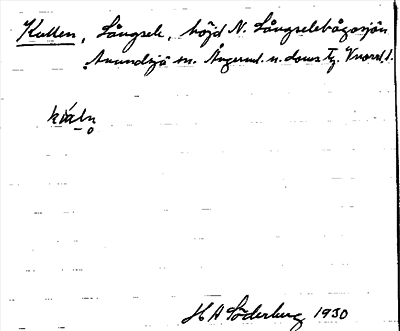 Kullen, Långsele, höjd N. Långselebågasjön
Anundsjö sn. Ångerml. n. doms tg. Vnorrl. l.
H A Söderberg 1930